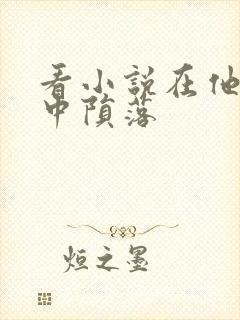 看小说在他
中陨落
烜之墨